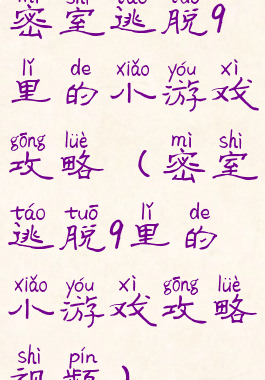 mì shì táo tuō
密室逃脱9
lǐ de xiǎo yóu xì
里的小游戏
gōng lüè mì shì
攻略（密室
táo tuō lǐ de
逃脱9里的
xiǎo yóu xì gōng lüè
小游戏攻略
shì pín
视频）